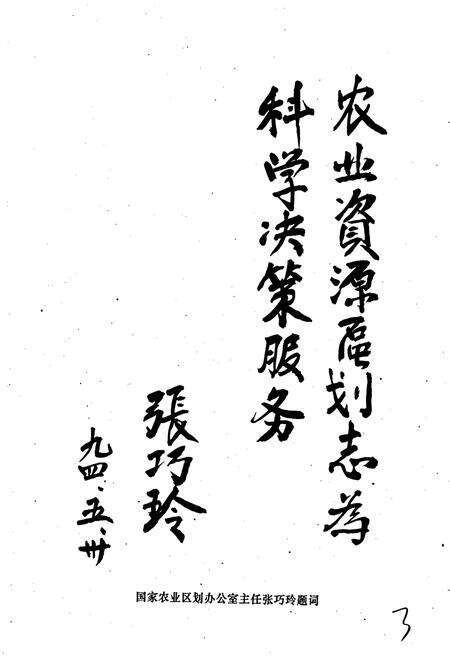 农业資源區划志為
科学决策服务
張巧玲
九四、五、卅
国家农业区划办公室主任张巧玲题词
3